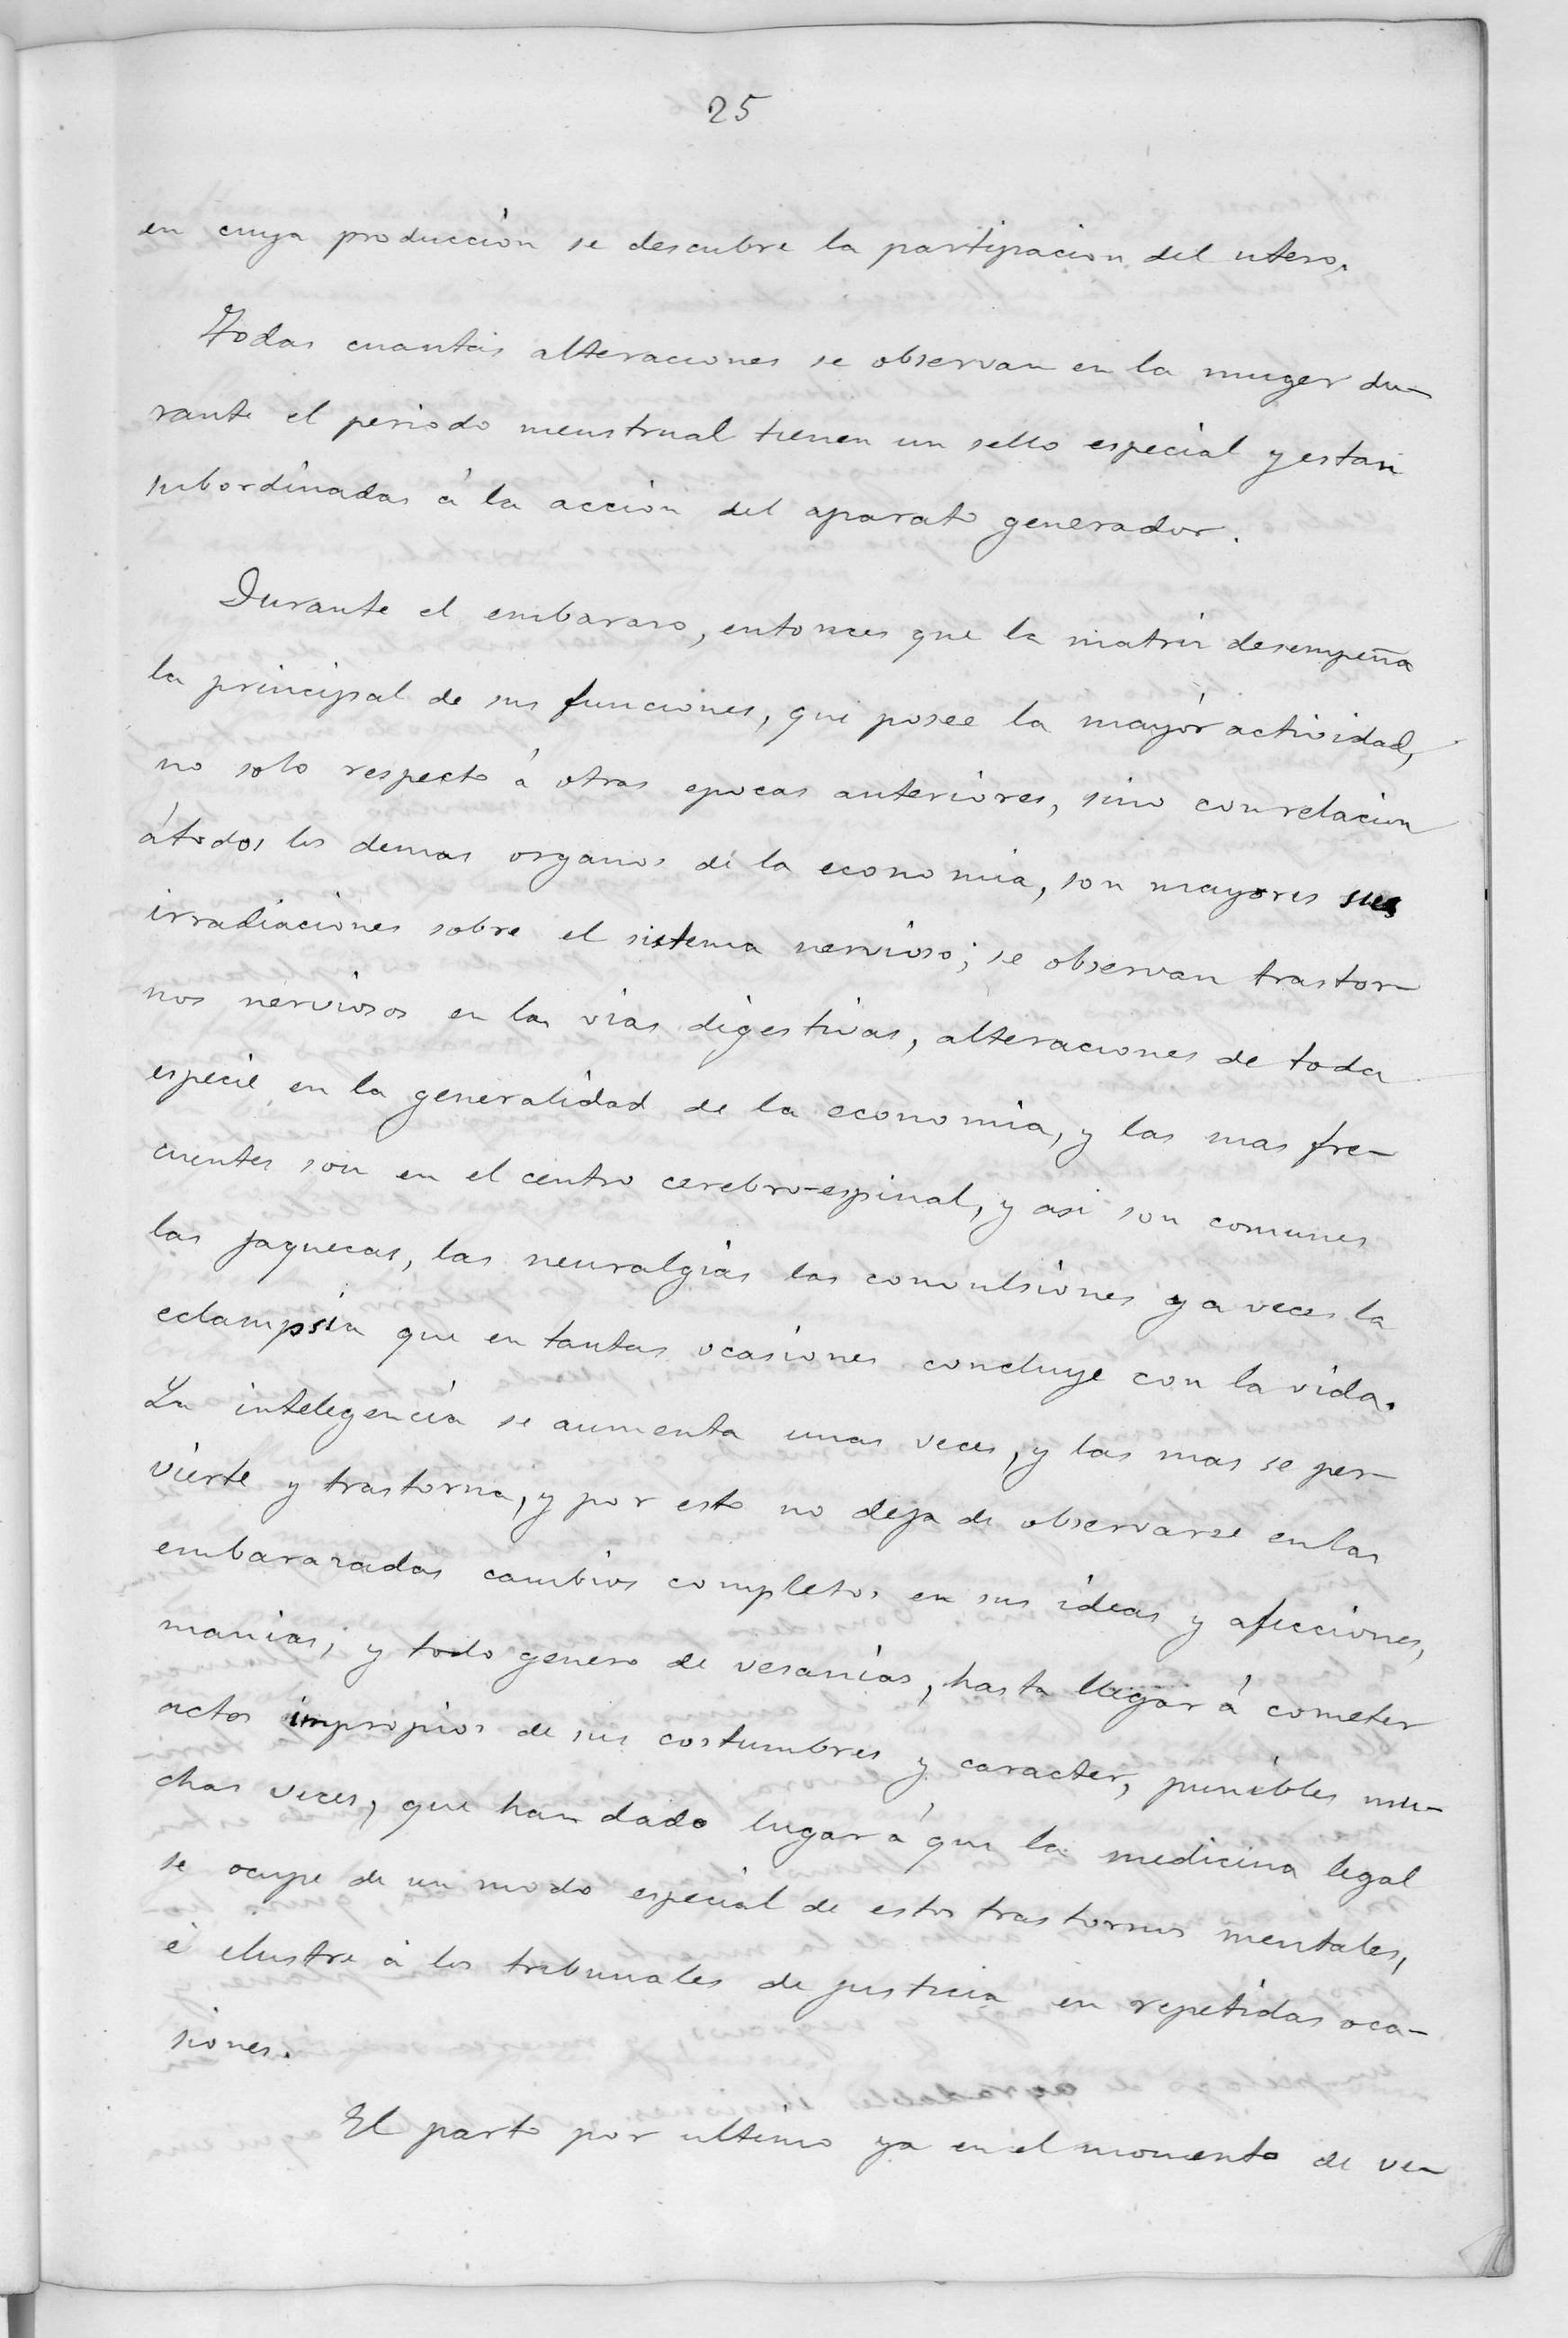 25
en cuya producción se descubre la partipacion del utero.
Todas cuantas alteraciones se observan en la muger du-
rante el periodo menstrual tienen un sello especial y estan
subordinadas á la acción del aparato generador.
Durante el embarazo, entonces que la matriz desempeña
la principal de sus funciones, que posee la mayór actividad,
no solo respecto á otras epocas anteriores, sino con relacion
á todos los demas organos de la economia, son mayores sus
irradiaciones sobre el sistema nervioso; se observan trastor-
nos nerviosos en las vias digestivas, alteraciones de toda
especie en la generalidad de la economia, y las mas fre-
cuentes son en el centro cerebro-espinal, y asi son comunes
las jaquecas, las neuralgias las convulsiones y a veces la
eclampsia que en tantas ocasiones concluye con la vida.
La intelegencia se aumenta unas veces, y las mas se per-
vierte y trastorna, y por esto no deja de observarse en las
embarazadas cambios completos en sus ideas y afecciones,
manias, y todo genero de vesanias, hasta llegar á cometer
actos impropios de sus costumbres y caracter, punibles mu-
chas veces, que han dado lugar á que la medicina legal
se ocupe de un modo especial de estos trastornos mentales,
é ilustre á los tribunales de justicia en repetidas oca-
siones.
El parto por ultimo ya en el momento de ve-